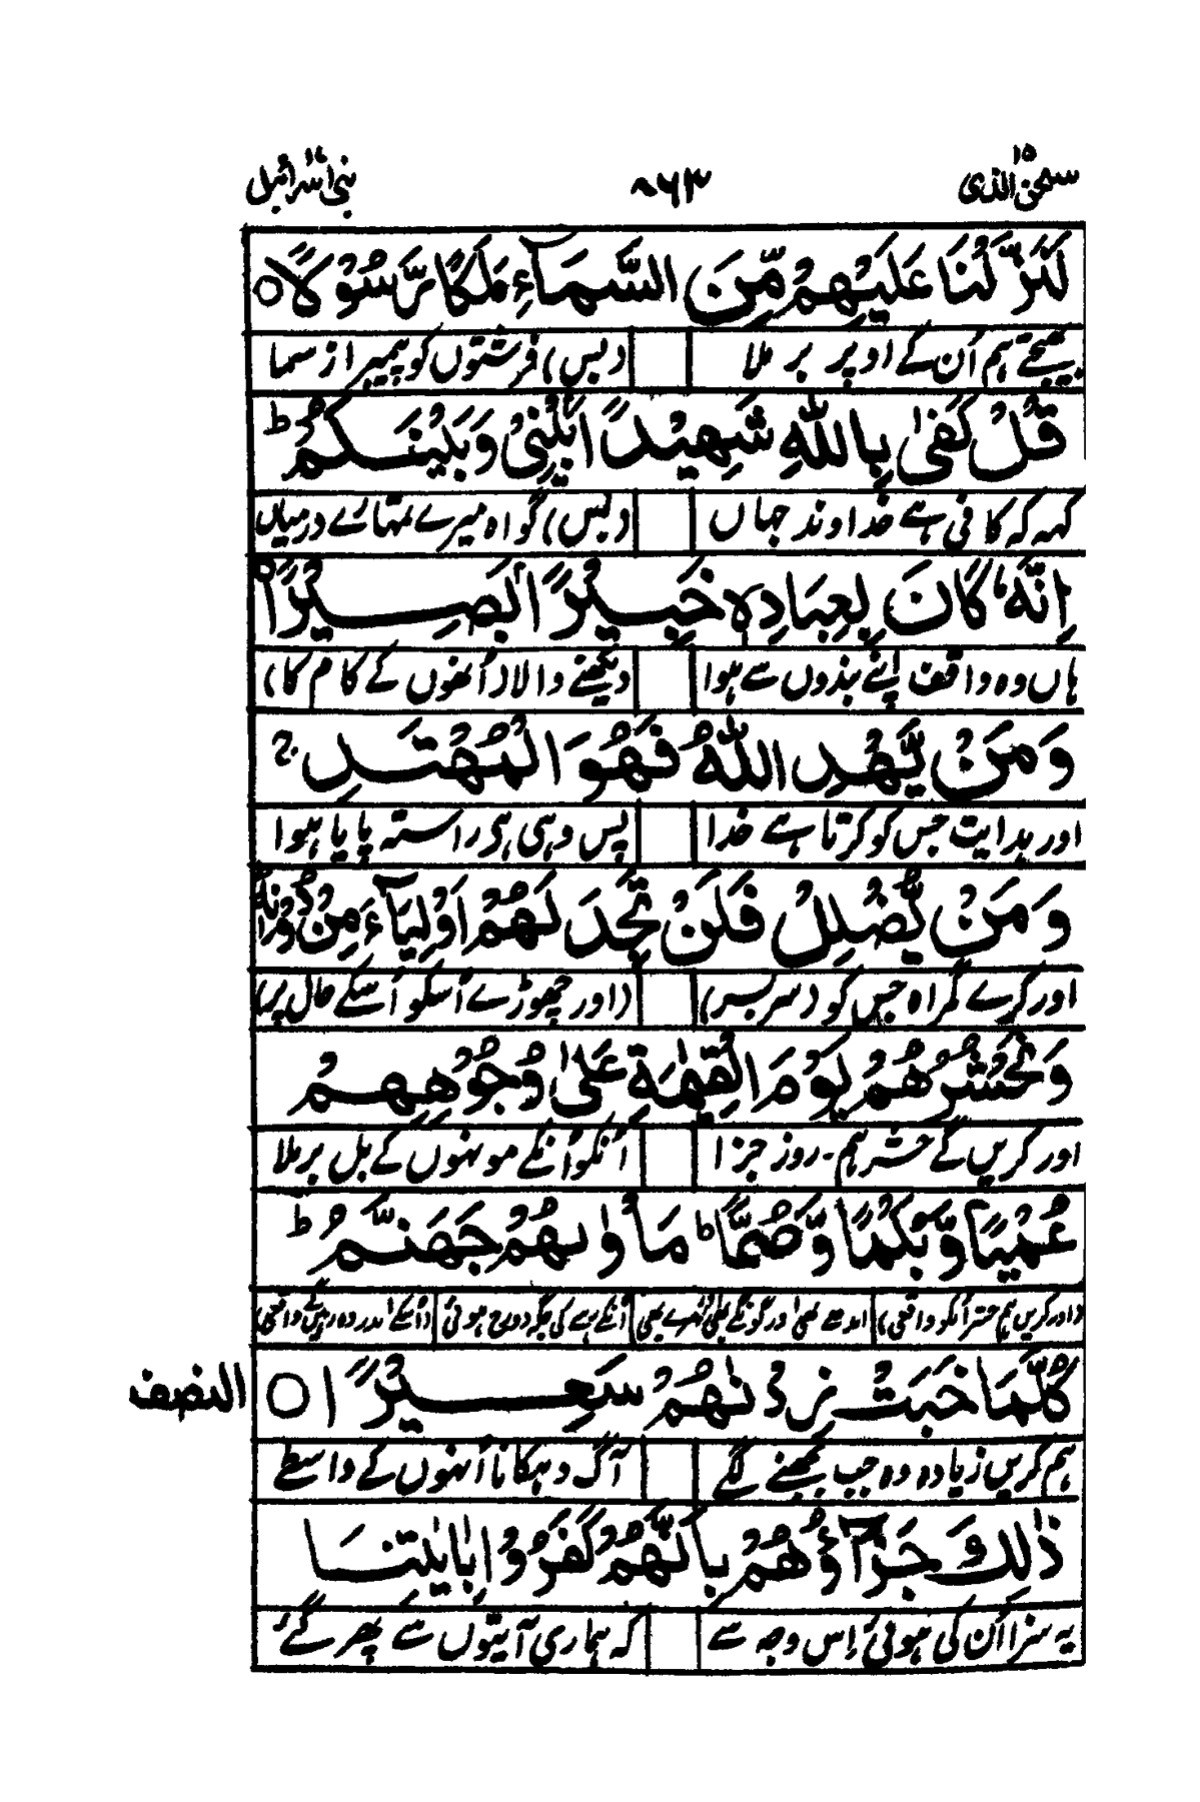 سبحن الذی ۱۵ ۸۶۳ بنی اسرائیل ۱۷
لَنَزَّلْنَا عَلَيْهِمْ مِّنَ السَّمَآءِ مَلَكًا رَّسُوْلًا ○
بھیجتے ہم اُن کے اوپر بر ملا (بس) فرشتوں کو پیمبر از سما
قُلْ كَفٰى بِاللّٰهِ شَهِيْدًۢا بَيْنِيْ وَبَيْنَكُمْ ؕ
کہہ کہ کافی ہے خداوند جہاں (بس) گواہ میرے تمہارے درمیاں
اِنَّهٗ كَانَ بِعِبَادِهٖ خَبِيْرًۢا بَصِيْرًا ○
ہاں وہ واقف اپنے بندوں سے ہوا دیکھنے والا (اُنھوں کے کام کا)
وَمَنْ يَّهْدِ اللّٰهُ فَهُوَ الْمُهْتَدِ ۚ
اور ہدایت جس کو کرتا ہے خدا پس وہی ہی راستہ پایا ہوا
وَمَنْ يُّضْلِلْ فَلَنْ تَجِدَ لَهُمْ اَوْلِيَآءَ مِنْ دُوْنِهٖ
اور کرے گمراہ جس کو (سربسر) (اور چھوڑے اُسکو اُسکے حال پر)
وَنَحْشُرُهُمْ يَوْمَ الْقِيٰمَةِ عَلٰى وُجُوْهِهِمْ
اور کریں گے حشر ہم۔ روز جزا اُنکو اُنکے مونہوں کے بل بر ملا
عُمْيًا وَّبُكْمًا وَّصُمًّا ؕ مَاْوٰىهُمْ جَهَنَّمُ ؕ
(اور کریں ہم حشر اُنکو واقعی) اندھے بھی اور گونگے بھی بہرے بھی اُنکے رہنے کی جگہ دوزخ ہوئی (اُسکے اندر وہ رہیں گے واقعی)
كُلَّمَا خَبَتْ زِدْنٰهُمْ سَعِيْرًا ○ النصف
ہم کریں زیادہ وہ جب بجھنے لگے آگ دہکانا اُنہوں کے واسطے
ذٰلِكَ جَزَآؤُهُمْ بِاَنَّهُمْ كَفَرُوْا بِاٰيٰتِنَا
یہ سزا اُن کی ہوئی اِس وجہ سے کہ ہماری آیتوں سے پھر گئے